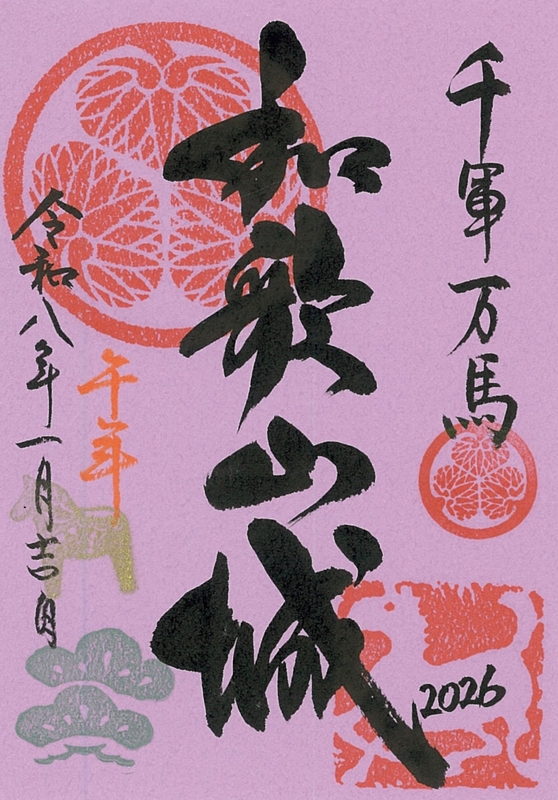 千軍万馬
和歌山城
2026
午年
令和八年一月吉日